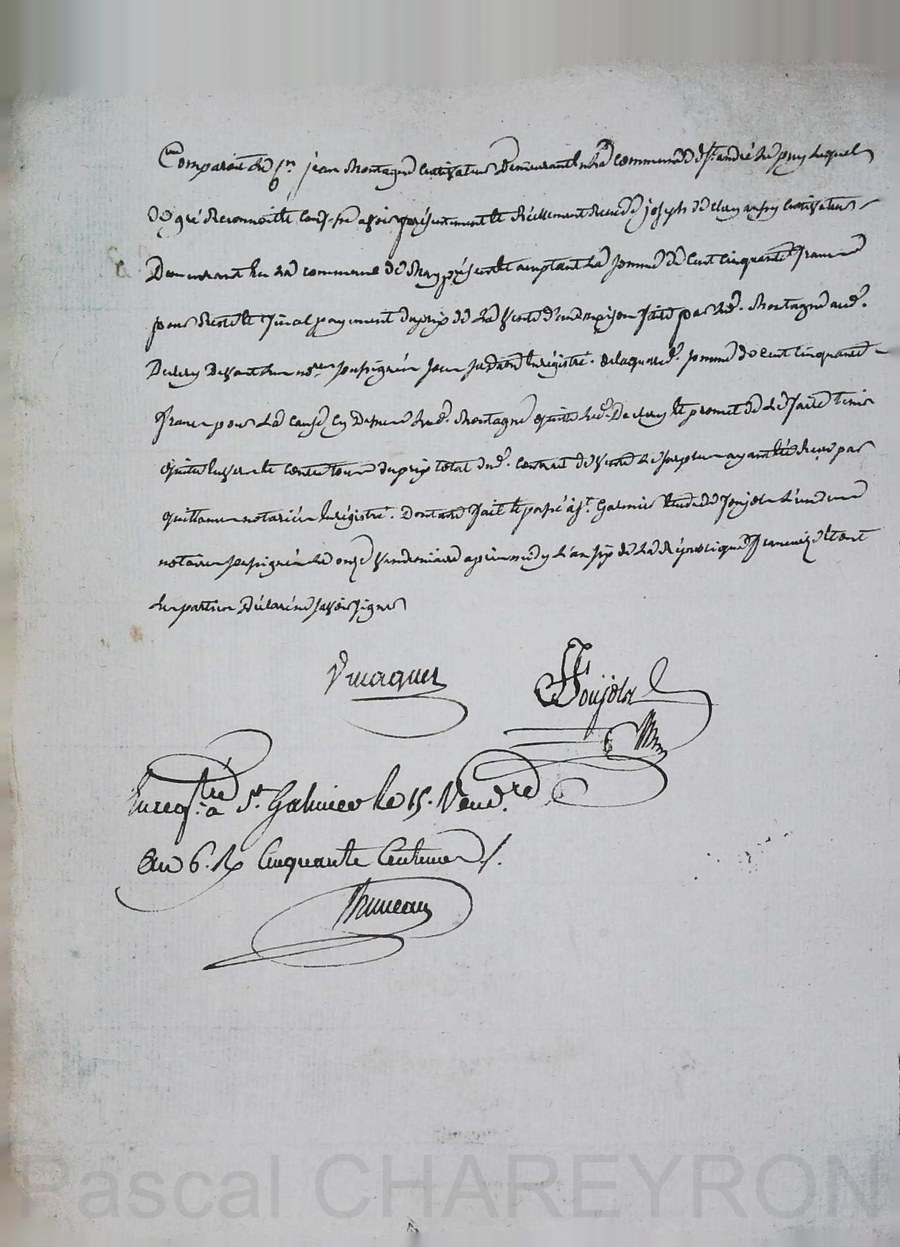 Comparait le Cn jean Montagne cultivateur demeurant en la commune de St andré le puy lequel
de gré Reconnoit et confesse avoir présentement et Réellement Receu de joseph cultivateur
Demeurant en la commune de présent et acceptant la somme de cent cinquante francs
pour Reste et final payement du prix de la vente d'une maison faite par led. Montagne aud.
Devant les nores soussignés jour enregistré. de laquelle d. somme de cent cinquante
francs pour la cause led. Montagne quitte led. et promet de le faire tenir
quitte envers et contre tous du prix total dud. contrat de vente le ayant été Receu par
quittance notariée Enregistré. Dont acte fait et passé à St. Galmier Etude de Foujols l'un des
notaires soussignés le onze vendemiaire après midy l'an six de la République française et ont
les parties Déclaré ne savoir signer
Foujols
Enregistré à St. Galmier le 15. Vend.re
an 6. R Cinquante Centimes
Bruneau
Pascal CHAREYRON